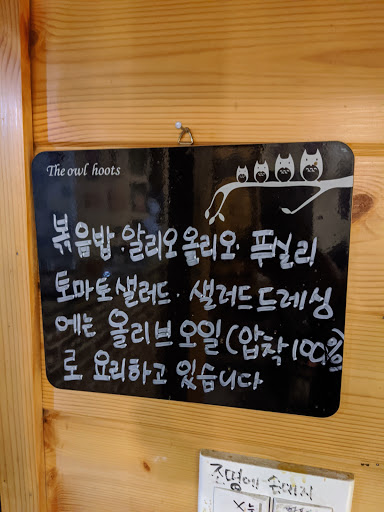 The owl hoots
볶음밥·알리오올리오·푸실리
토마토샐러드·샐러드드레싱
에는 올리브오일(압착100%)
로 요리하고 있습니다
조명에 손대지